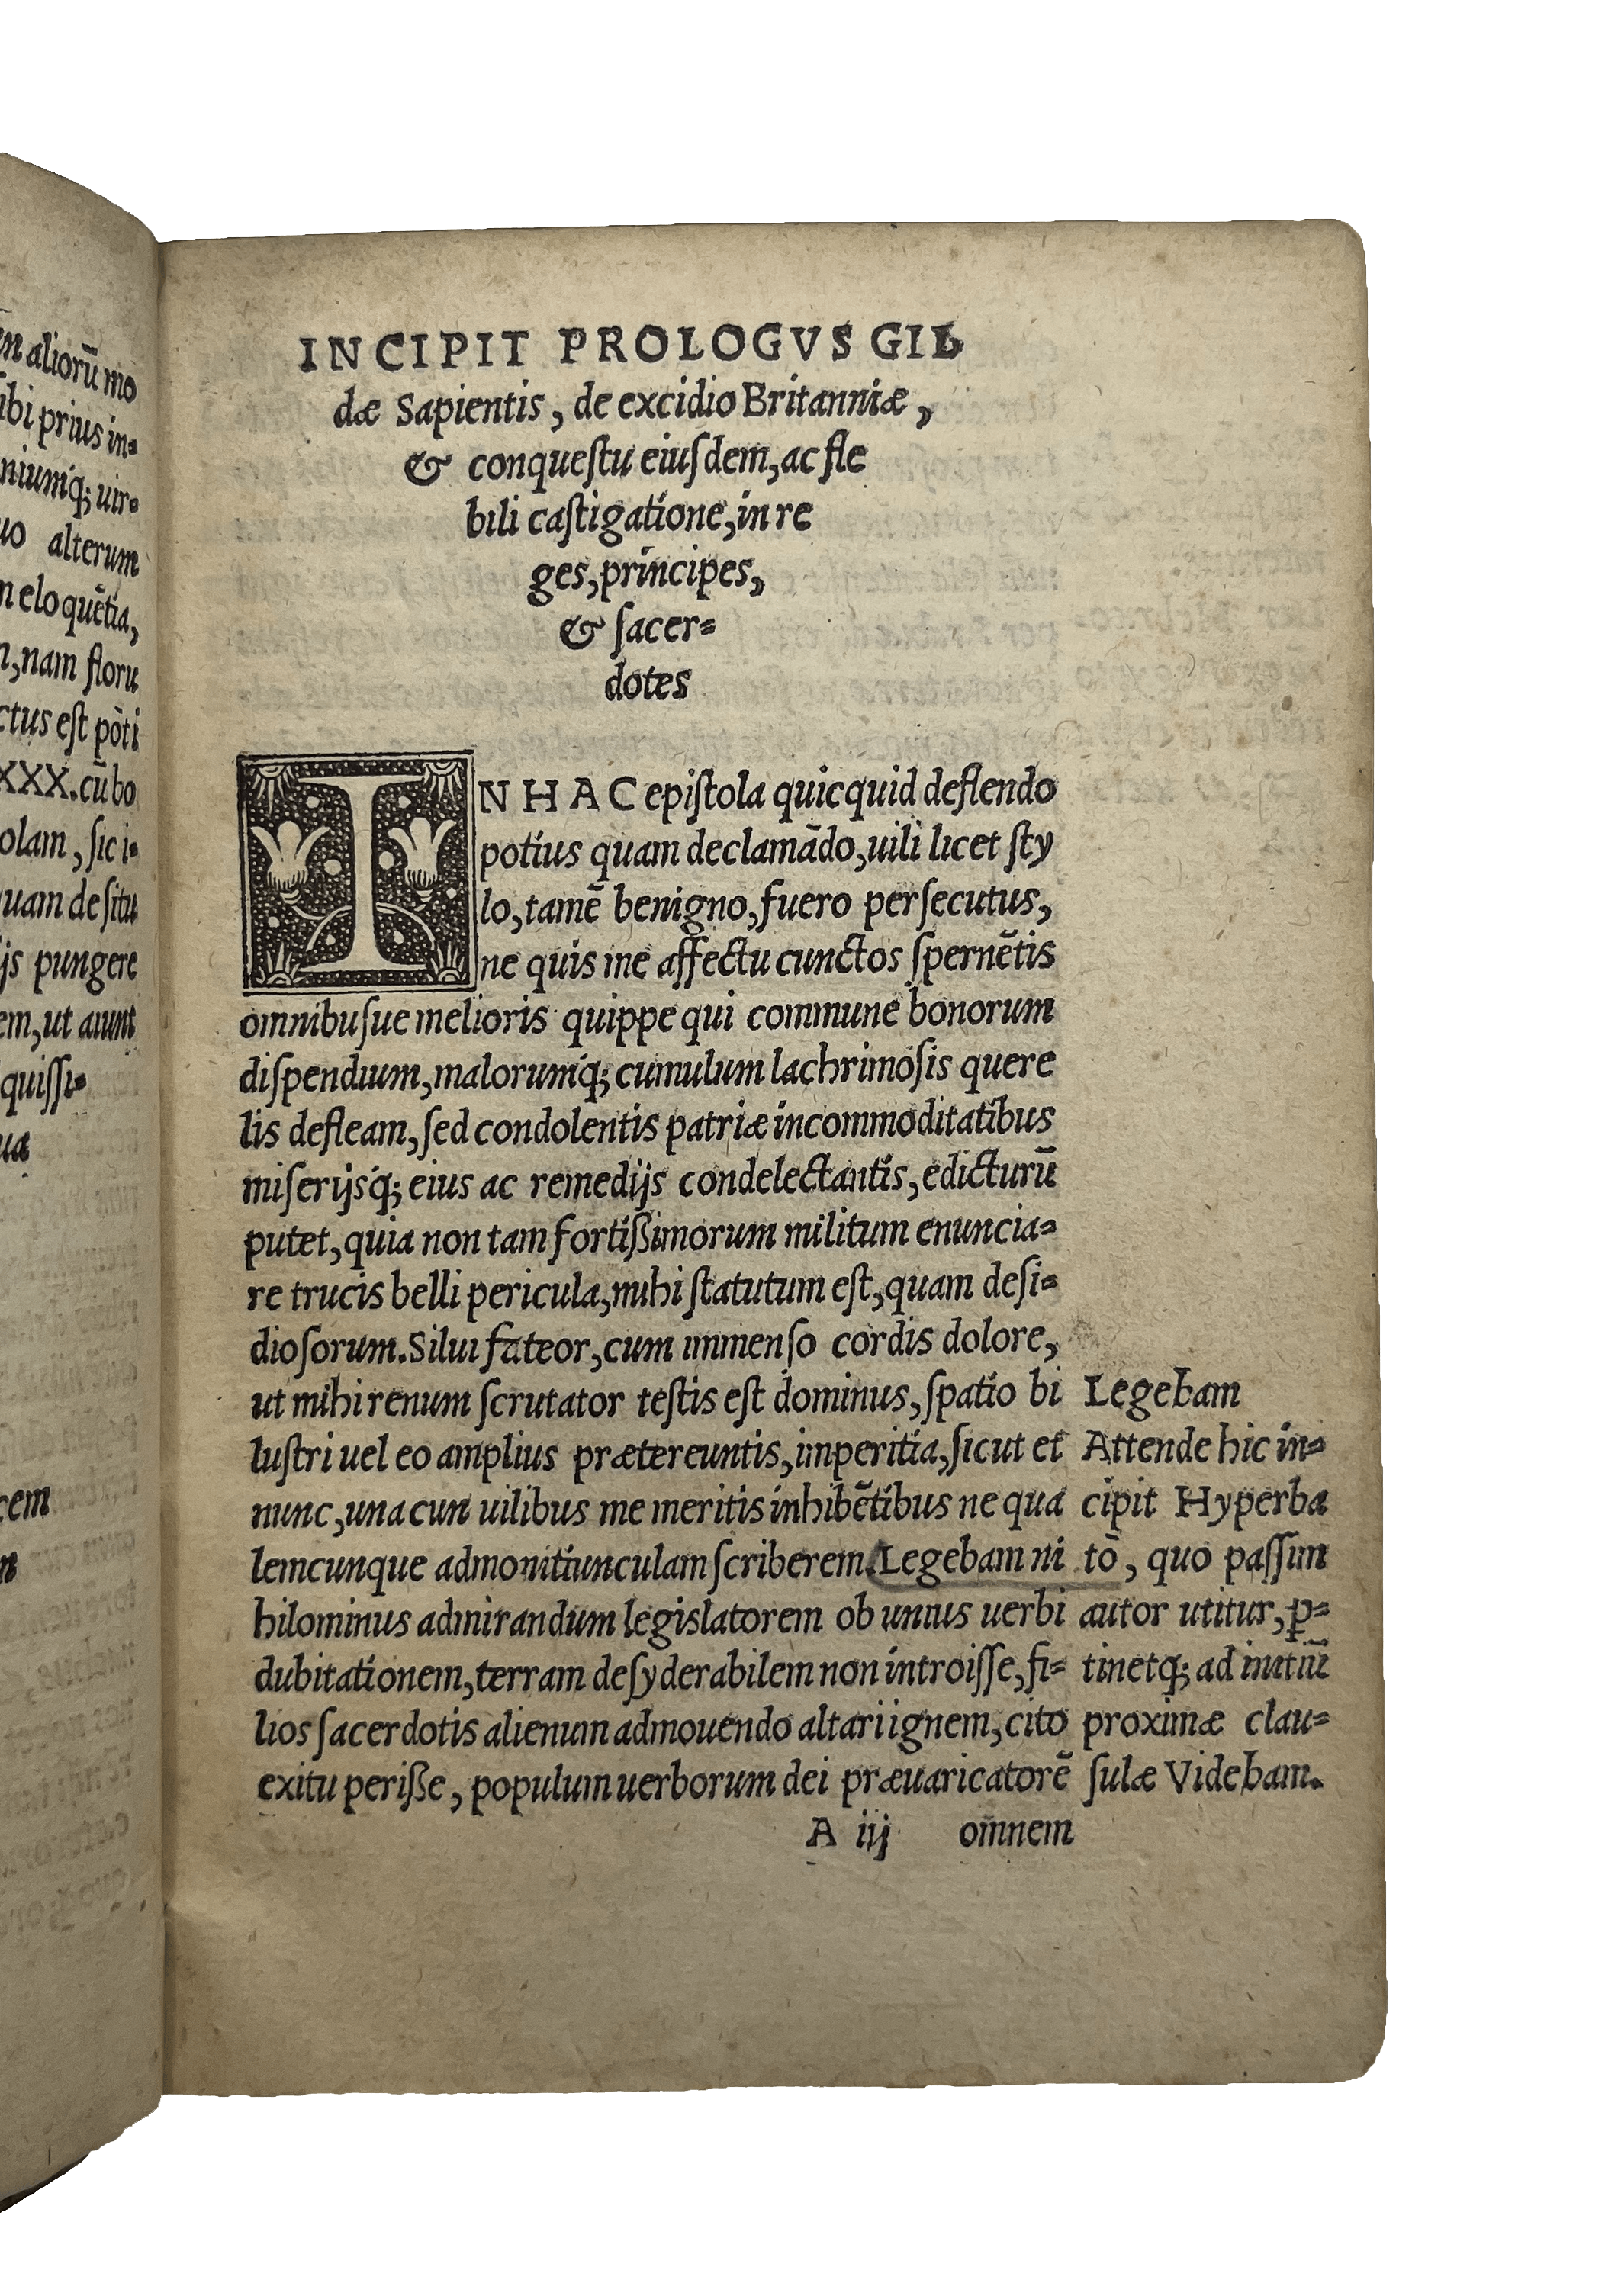 en aliorū mo
ibi prius in-
niumq́; uir-
uo alterum
n eloquētia,
n, nam floru
ctus est pòti
XXX. cū bo
olam, sic i-
uam de situ
ijs pungere
em, ut aiunt
quissi-
ua
cem
n
INCIPIT PROLOGVS GIL
dæ Sapientis, de excidio Britanniæ,
& conquestu eiusdem, ac fle
bili castigatione, in re
ges, principes,
& sacer-
dotes
IN HAC epistola quicquid deflendo
potius quam declamādo, uili licet sty
lo, tamē benigno, fuero persecutus,
ne quis me affectu cunctos spernētis
omnibusue melioris quippe qui commune bonorum
dispendium, malorumq́; cumulum lachrimosis quere
lis defleam, sed condolentis patriæ incommoditatibus
miserijsq́; eius ac remedijs condelectantis, edicturū
putet, quia non tam fortißimorum militum enuncia-
re trucis belli pericula, mihi statutum est, quam desi-
diosorum. Silui fateor, cum immenso cordis dolore,
ut mihi renum scrutator testis est dominus, spatio bi
lustri uel eo amplius prætereuntis, imperitia, sicut et
nunc, una cun uilibus me meritis inhibētibus ne qua
lemcunque admonitiunculam scriberem. Legebam ni
hilominus admirandum legislatorem ob unius uerbi
dubitationem, terram desyderabilem non introisse, fi-
lios sacerdotis alienum admouendo altari ignem, cito
exitu perißse, populum uerborum dei præuaricatorē
Legebam
Attende hic in-
cipit Hyperba
tō, quo passim
autor utitur, ꝑ-
tinetq́; ad initiū
proximæ clau-
sulæ Videbam.
A iij omnem